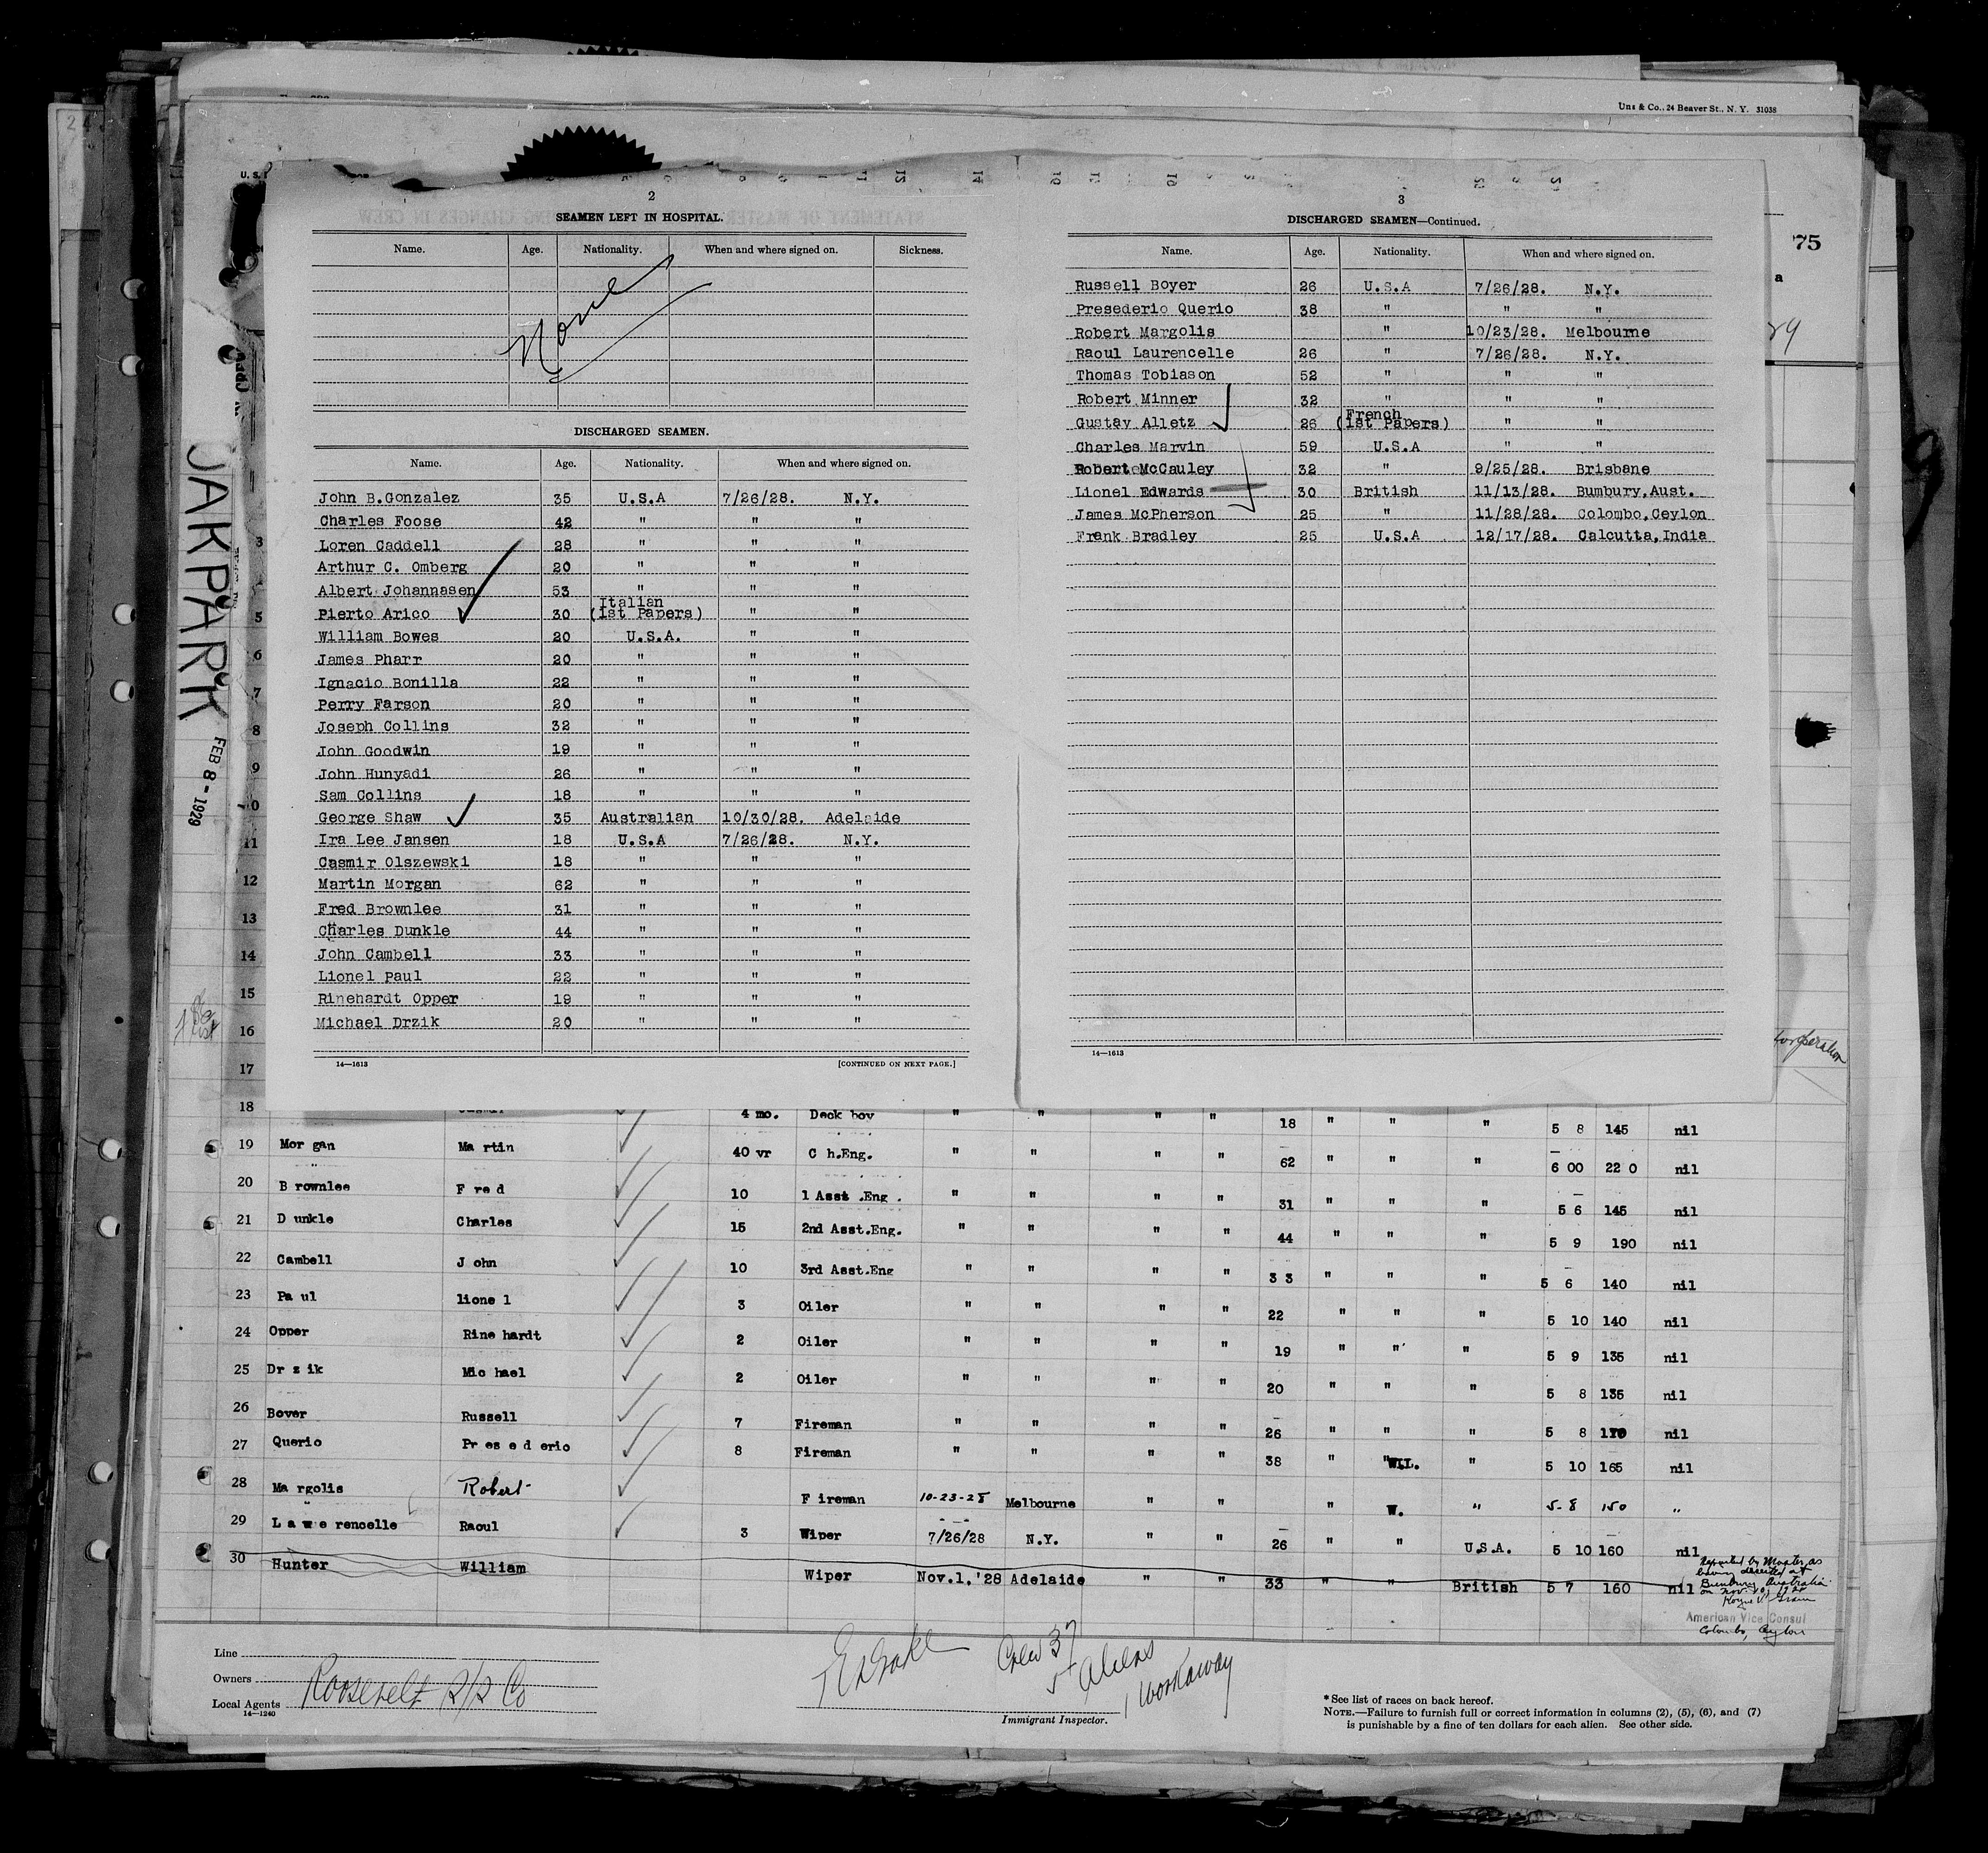 Uns & Co., 24 Beaver St., N. Y. 31038
U. S.
75
a
JAKPARK
FEB 8 - 1929
2
SEAMEN LEFT IN HOSPITAL.
Name. Age. Nationality. When and where signed on. Sickness.
None
DISCHARGED SEAMEN.
Name. Age. Nationality. When and where signed on.
John B.Gonzalez 35 U.S.A 7/26/28. N.Y.
Charles Foose 42 " " "
Loren Caddell 28 " " "
Arthur C. Omberg 20 " " "
Albert Johannasen 53 " " "
Pierto Arico 30 Italian (1st Papers) " "
William Bowes 20 U.S.A. " "
James Pharr 20 " " "
Ignacio Bonilla 22 " " "
Perry Farson 20 " " "
Joseph Collins 32 " " "
John Goodwin 19 " " "
John Hunyadi 26 " " "
Sam Collins 18 " " "
George Shaw 35 Australian 10/30/28. Adelaide
Ira Lee Jansen 18 U.S.A 7/26/28. N.Y.
Casmir Olszewski 18 " " "
Martin Morgan 62 " " "
Fred Brownlee 31 " " "
Charles Dunkle 44 " " "
John Cambell 33 " " "
Lionel Paul 22 " " "
Rinehardt Opper 19 " " "
Michael Drzik 20 " " "
14—1613 [CONTINUED ON NEXT PAGE.]
3
DISCHARGED SEAMEN—Continued.
Name. Age. Nationality. When and where signed on.
Russell Boyer 26 U.S.A 7/26/28. N.Y.
Presederio Querio 38 " " "
Robert Margolis " 10/23/28. Melbourne
Raoul Laurencelle 26 " 7/26/28. N.Y.
Thomas Tobiason 52 " " "
Robert Minner 32 " " "
Gustav Alletz 26 French (1st Papers) " "
Charles Marvin 59 U.S.A " "
Robert McCauley 32 " 9/25/28. Brisbane
Lionel Edwards 30 British 11/13/28. Bumbury,Aust.
James McPherson 25 " 11/28/28. Colombo,Ceylon
Frank Bradley 25 U.S.A 12/17/28. Calcutta,India
14—1613
3
5
6
7
8
9
10
11
12
13
14
15
16
17
18 4 mo. Deck boy " " " " 18 " " " 5 8 145 nil
19 Morgan Martin 40 yr Ch.Eng. " " " " 62 " " " 6 00 220 nil
20 Brownlee Fred 10 1 Asst.Eng. " " " " 31 " " " 5 6 145 nil
21 Dunkle Charles 15 2nd Asst.Eng. " " " " 44 " " " 5 9 190 nil
22 Cambell John 10 3rd Asst.Eng " " " " 33 " " " 5 6 140 nil
23 Paul lionel 3 Oiler " " " " 22 " " " 5 10 140 nil
24 Opper Rinehardt 2 Oiler " " " " 19 " " " 5 9 135 nil
25 Drzik Michael 2 Oiler " " " " 20 " " " 5 8 135 nil
26 Bover Russell 7 Fireman " " " " 26 " " " 5 8 170 nil
27 Querio Presederio 8 Fireman " " " " 38 " " 5 10 165 nil
28 Margolis Robert Fireman 10-23-28 Melbourne " " " W. " 5-8 150 "
29 Lawerencelle Raoul 3 Wiper 7/26/28 N.Y. " " 26 " " U.S.A. 5 10 160 nil
30 Hunter William Wiper Nov.1,'28 Adelaide " " 33 " " British 5 7 160 nil
Reported by Master as
having deserted at
Bunbury, Australia
on Nov. 10,
American Vice Consul
Colombo, Ceylon
Line
Owners
Local Agents Roosevelt S/S Co
14—1240
Crew 37
5 Aliens
1 Workaway
Immigrant Inspector.
* See list of races on back hereof.
NOTE.—Failure to furnish full or correct information in columns (2), (5), (6), and (7)
is punishable by a fine of ten dollars for each alien. See other side.